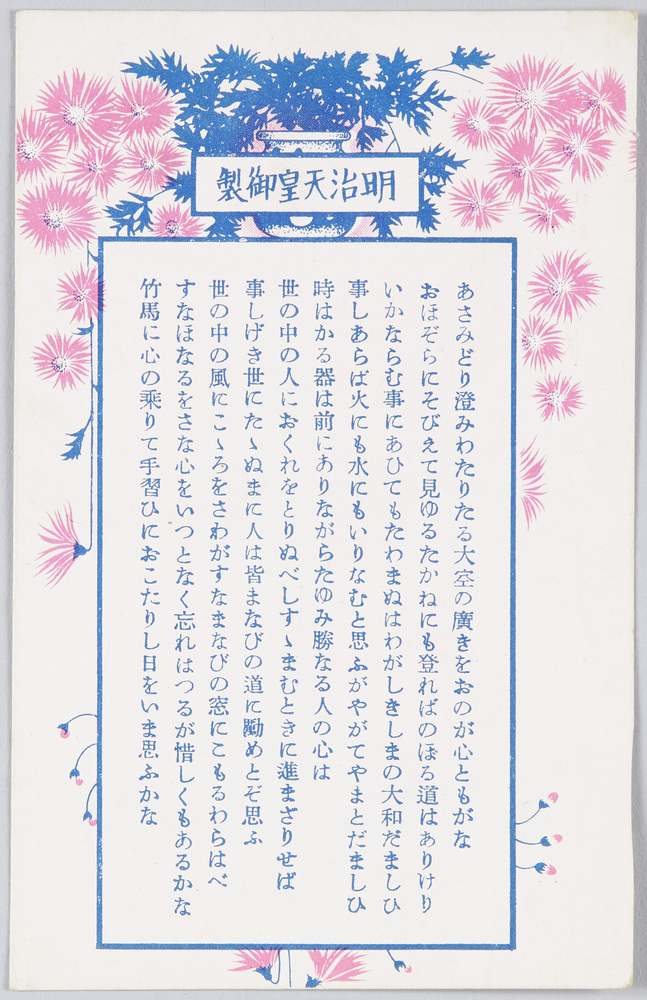 明治天皇御製
あさみどり澄みわたりたる大空の廣きをおのが心ともがな
おほぞらにそびえて見ゆるたかねにも登ればのぼる道はありけり
いかならむ事にあひてもたわまぬはわがしきしまの大和だましひ
事しあらば火にも水にもいりなむと思ふがやがてやまとだましひ
時はかる器は前にありながらたゆみ勝なる人の心は
世の中の人におくれをとりぬべしすゝまむときに進まざりせば
事しげき世にたゝぬまに人は皆まなびの道に勵めとぞ思ふ
世の中の風にこゝろをさわがすなまなびの窓にこもるわらはべ
すなほなるをさな心をいつとなく忘れはつるが惜しくもあるかな
竹馬に心の乘りて手習ひにおこたりし日をいま思ふかな